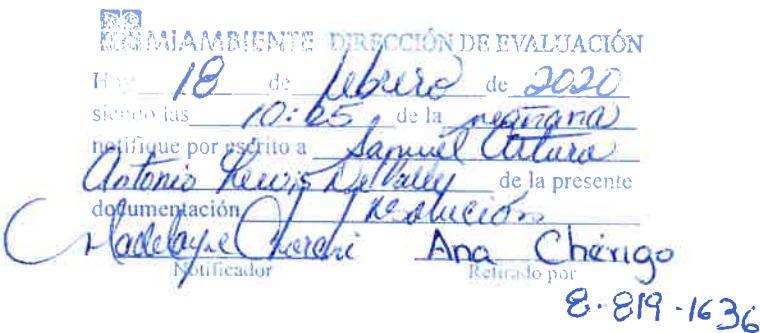 MIAMBIENTE DIRECCIÓN DE EVALUACIÓN
Hoy 18 de febrero de 2020
siendo las 10:05 de la mañana
notifique por escrito a Samuel Arturo
Antonio Lewis De de la presente
documentación resolución
Ana Chérigo
Notificador Retirado por
8-819-1636